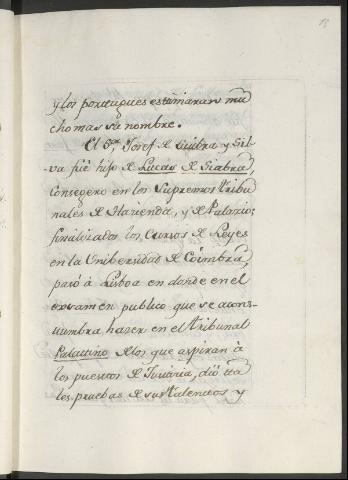 y los portugues estimaran mu
cho mas su nombre.
El Sr. Josef de Siabra y Sil-
-va fué hijo de Lucas de Siabra,
Consegero en los Supremos Tribu
nales de Hacienda, y de Palacio;
finalizados los Cursos de Leyes
en la Unibersidad de Coimbra,
pasó á Lisboa en donde en el
exsamen publico que se acos-
tumbra hazer en el tribunal
Palatino de los que aspiran à
los puestos de Justicia, dió ta
les pruebas de sus talentos y